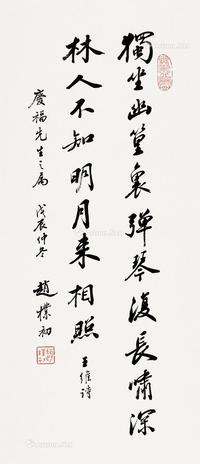 獨坐幽篁裏彈琴復長嘯深
林人不知明月来相照
王維詩
慶福先生之屬
戊辰仲冬
趙樸初